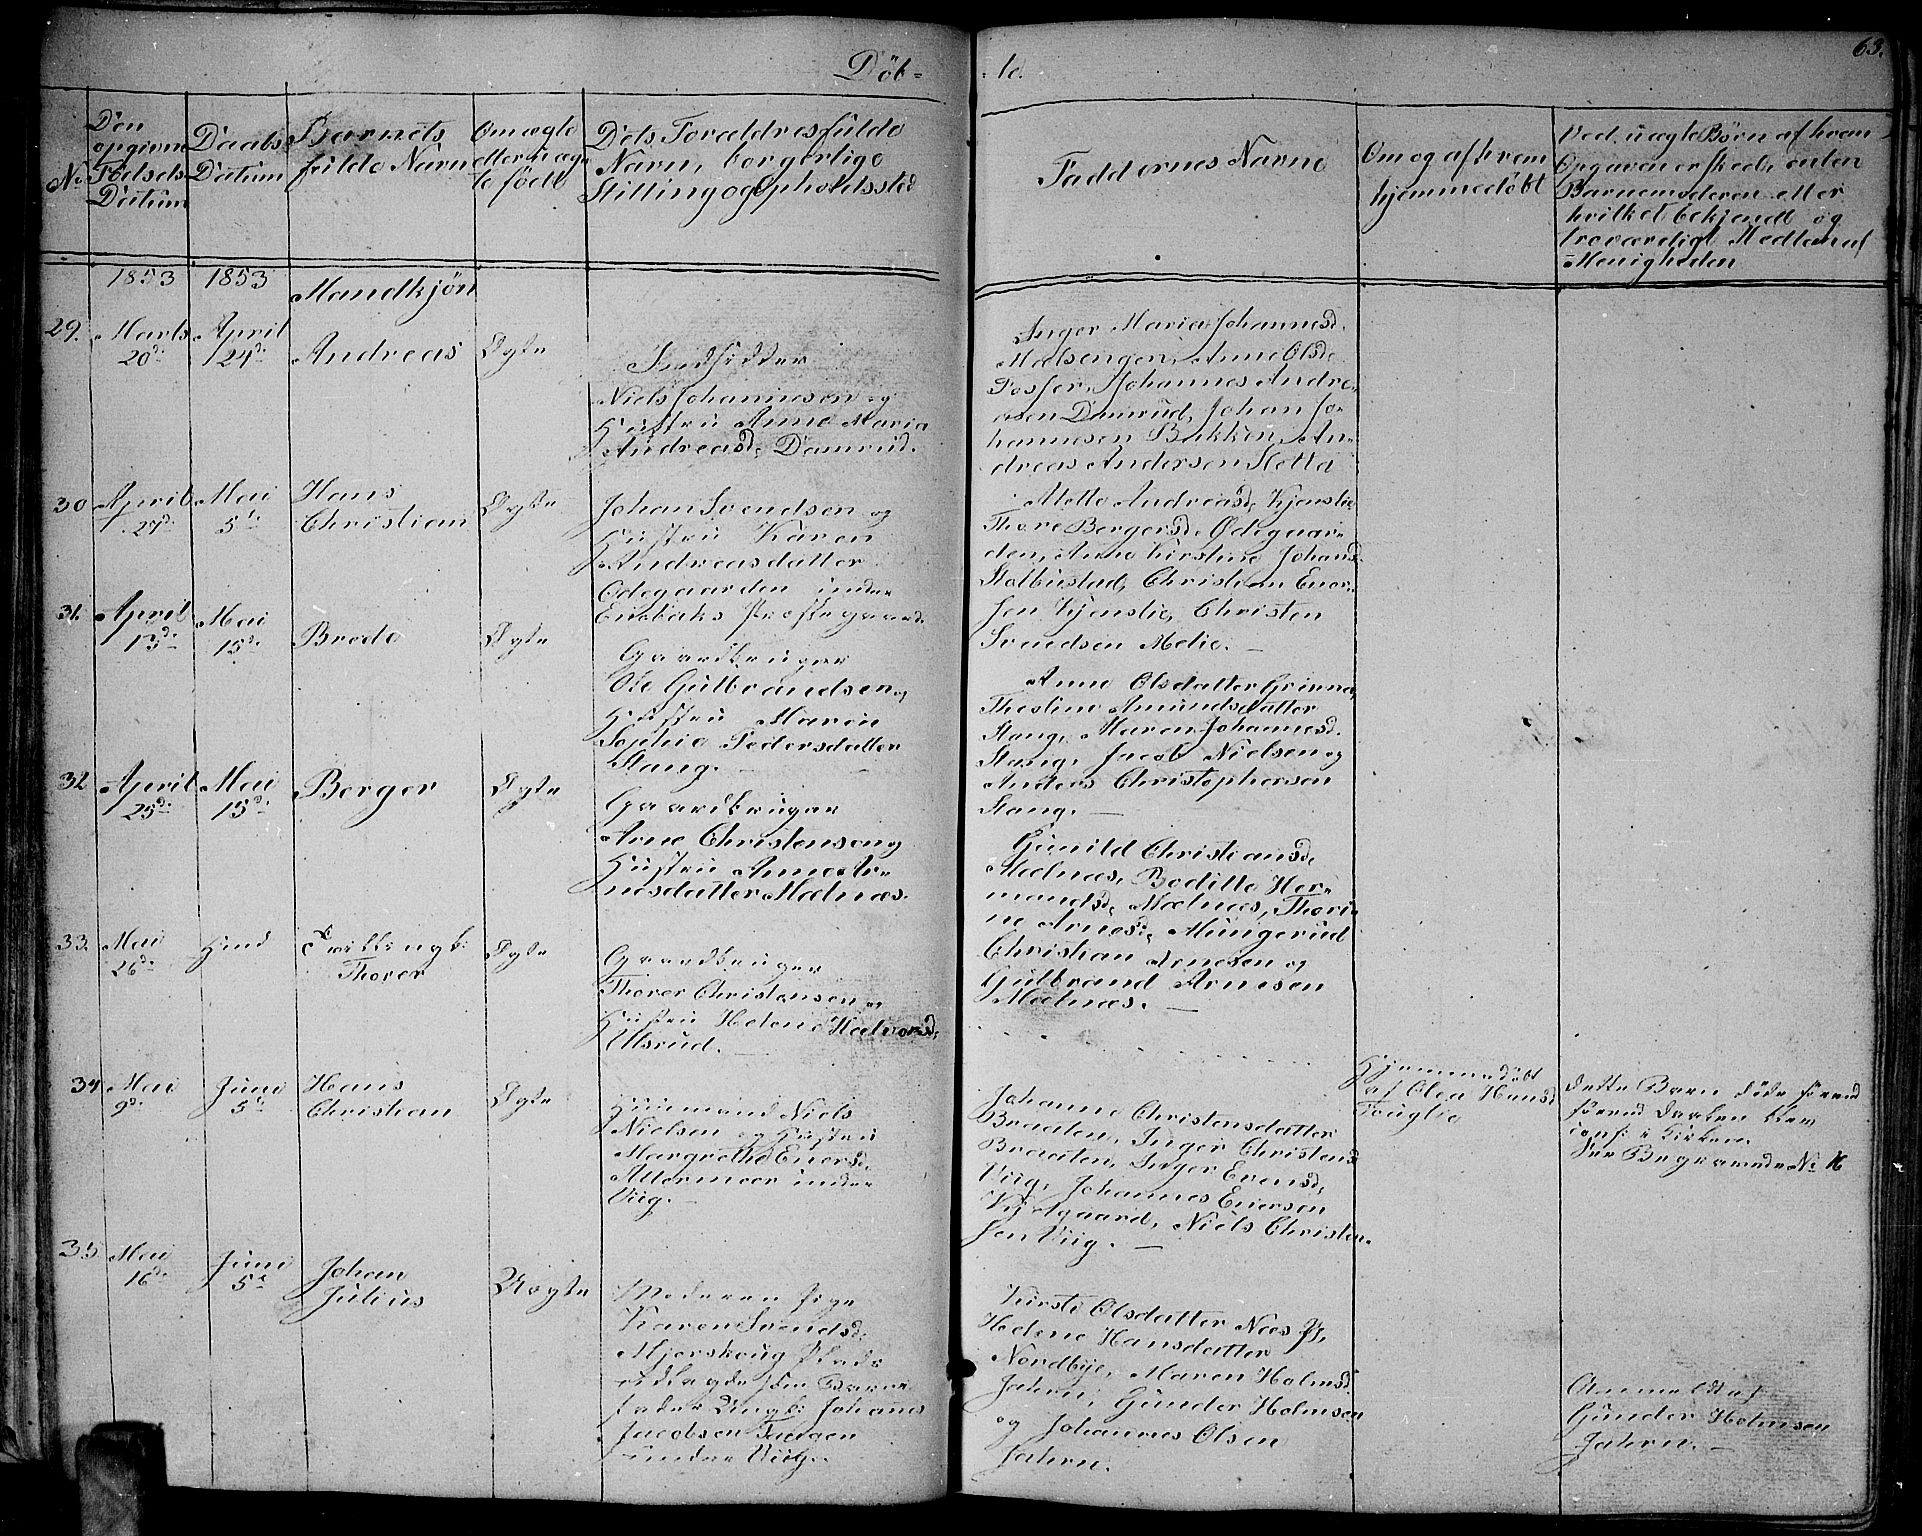 Döb-
te.
63.
No
Den
opgivne
Födsels
Datum
Daabs
Datum
Barnets
fulde Navn
Om ægte
eller uæg
te född
Dets Forældres fulde
Navn, borgerlige
Stilling og Opholdssted
Faddernes Navne
Om og af hvem
hjemmedöbt
Ved uægte Börn af hvem
Opgaven er skeed, enten
Barnemoderen eller
hvilket bekjendt og
troværdigt Medlem af
Menigheden
1853 1853
Mandkjön
29.
Marts
20de
April
24de
Andreas
Ægte
Indsidder
Niels Johannesen og
Hustru Anne Maria
Andreasd. Damrud.
Inger Maria Johannesd.
Mælsengen, Anne Olsd.
Fosser, Johannes Andre-
asen Damrud, Johan Jo-
hannesen Bakken, An-
dreas Andersen Sletta
30
April
27de
Mai
5te
Hans
Christian
Ægte
Johan Svendsen og
Hustru Karen
Andreasdatter
Ödegaarden under
Enebaks Præstegaard.
Mette Andreasd. Kjenslie
Thore Bergersd. Ödegaar-
den, Anne Kirstine Johansd.
Stolbustad, Christian Ener-
sen Kjenslie, Christen
Svendsen Melie.
31.
April
13de
Mai
15de
Brede
Ægte
Gaardbruger
Ole Gulbrandsen og
Hustru Maren
Sophie Pedersdatter
Stang.
Anne Olsdatter Grinne
Thestine Amundsdatter
Stang, Maren Johannesd.
Stang, Jacob Nielsen og
Anders Christophersen
Stang.
32
April
25de
Mai
15de
Berger
Ægte
Gaardbruger
Arne Christensen og
Hustru Anne Ar-
nesdatter Mælnæs.
Gunild Christiansd.
Mælnæs, Bodille Her-
mandsd. Mælnæs, Thori-
ne Arnesd. Mungerud
Christian Arnesen og
Gulbrand Arnesen
Mælnæs.
33.
Mai
26de
Tvillingb:
Thorer
Ægte
Gaardbruger
Thorer Christensen og
Hustru Helene Halvorsd.
Ullsrud.
34
Mai
9de
Juni
5te
Hans
Christian
Ægte
Huusmand Niels
Nielsen og Hustru
Margrethe Enersd.
under
Viig.
Johanne Christensdatter
Braaten, Inger Christensd.
Braaten, Inger Evensd.
Viig, Johannes Enersen
Niels Christen-
sen Viig.
Hjemmedöbt
af Olea Hansd
Fouglie
Dette Barn döde förend
Daaben blev
conf: i Kirken.
See Begravede No 16
35
Mai
16de
Juni
5te
Johan
Julius
Uægte
Moderen Pige
Karen Svendsd.
Mjerskoug Plads
udlagde som Barne-
fader Ungk: Johannes
Jacobsen
under Viig.
Kirsti Olsdatter Næs Pl.
Helene Hansdatter
Nordbye, Maren Holmsd.
Jahren, Gunder Holmsen
og Johannes Olsen
Jahren.
Anmeldt af
Gunder Holmsen
Jahren.